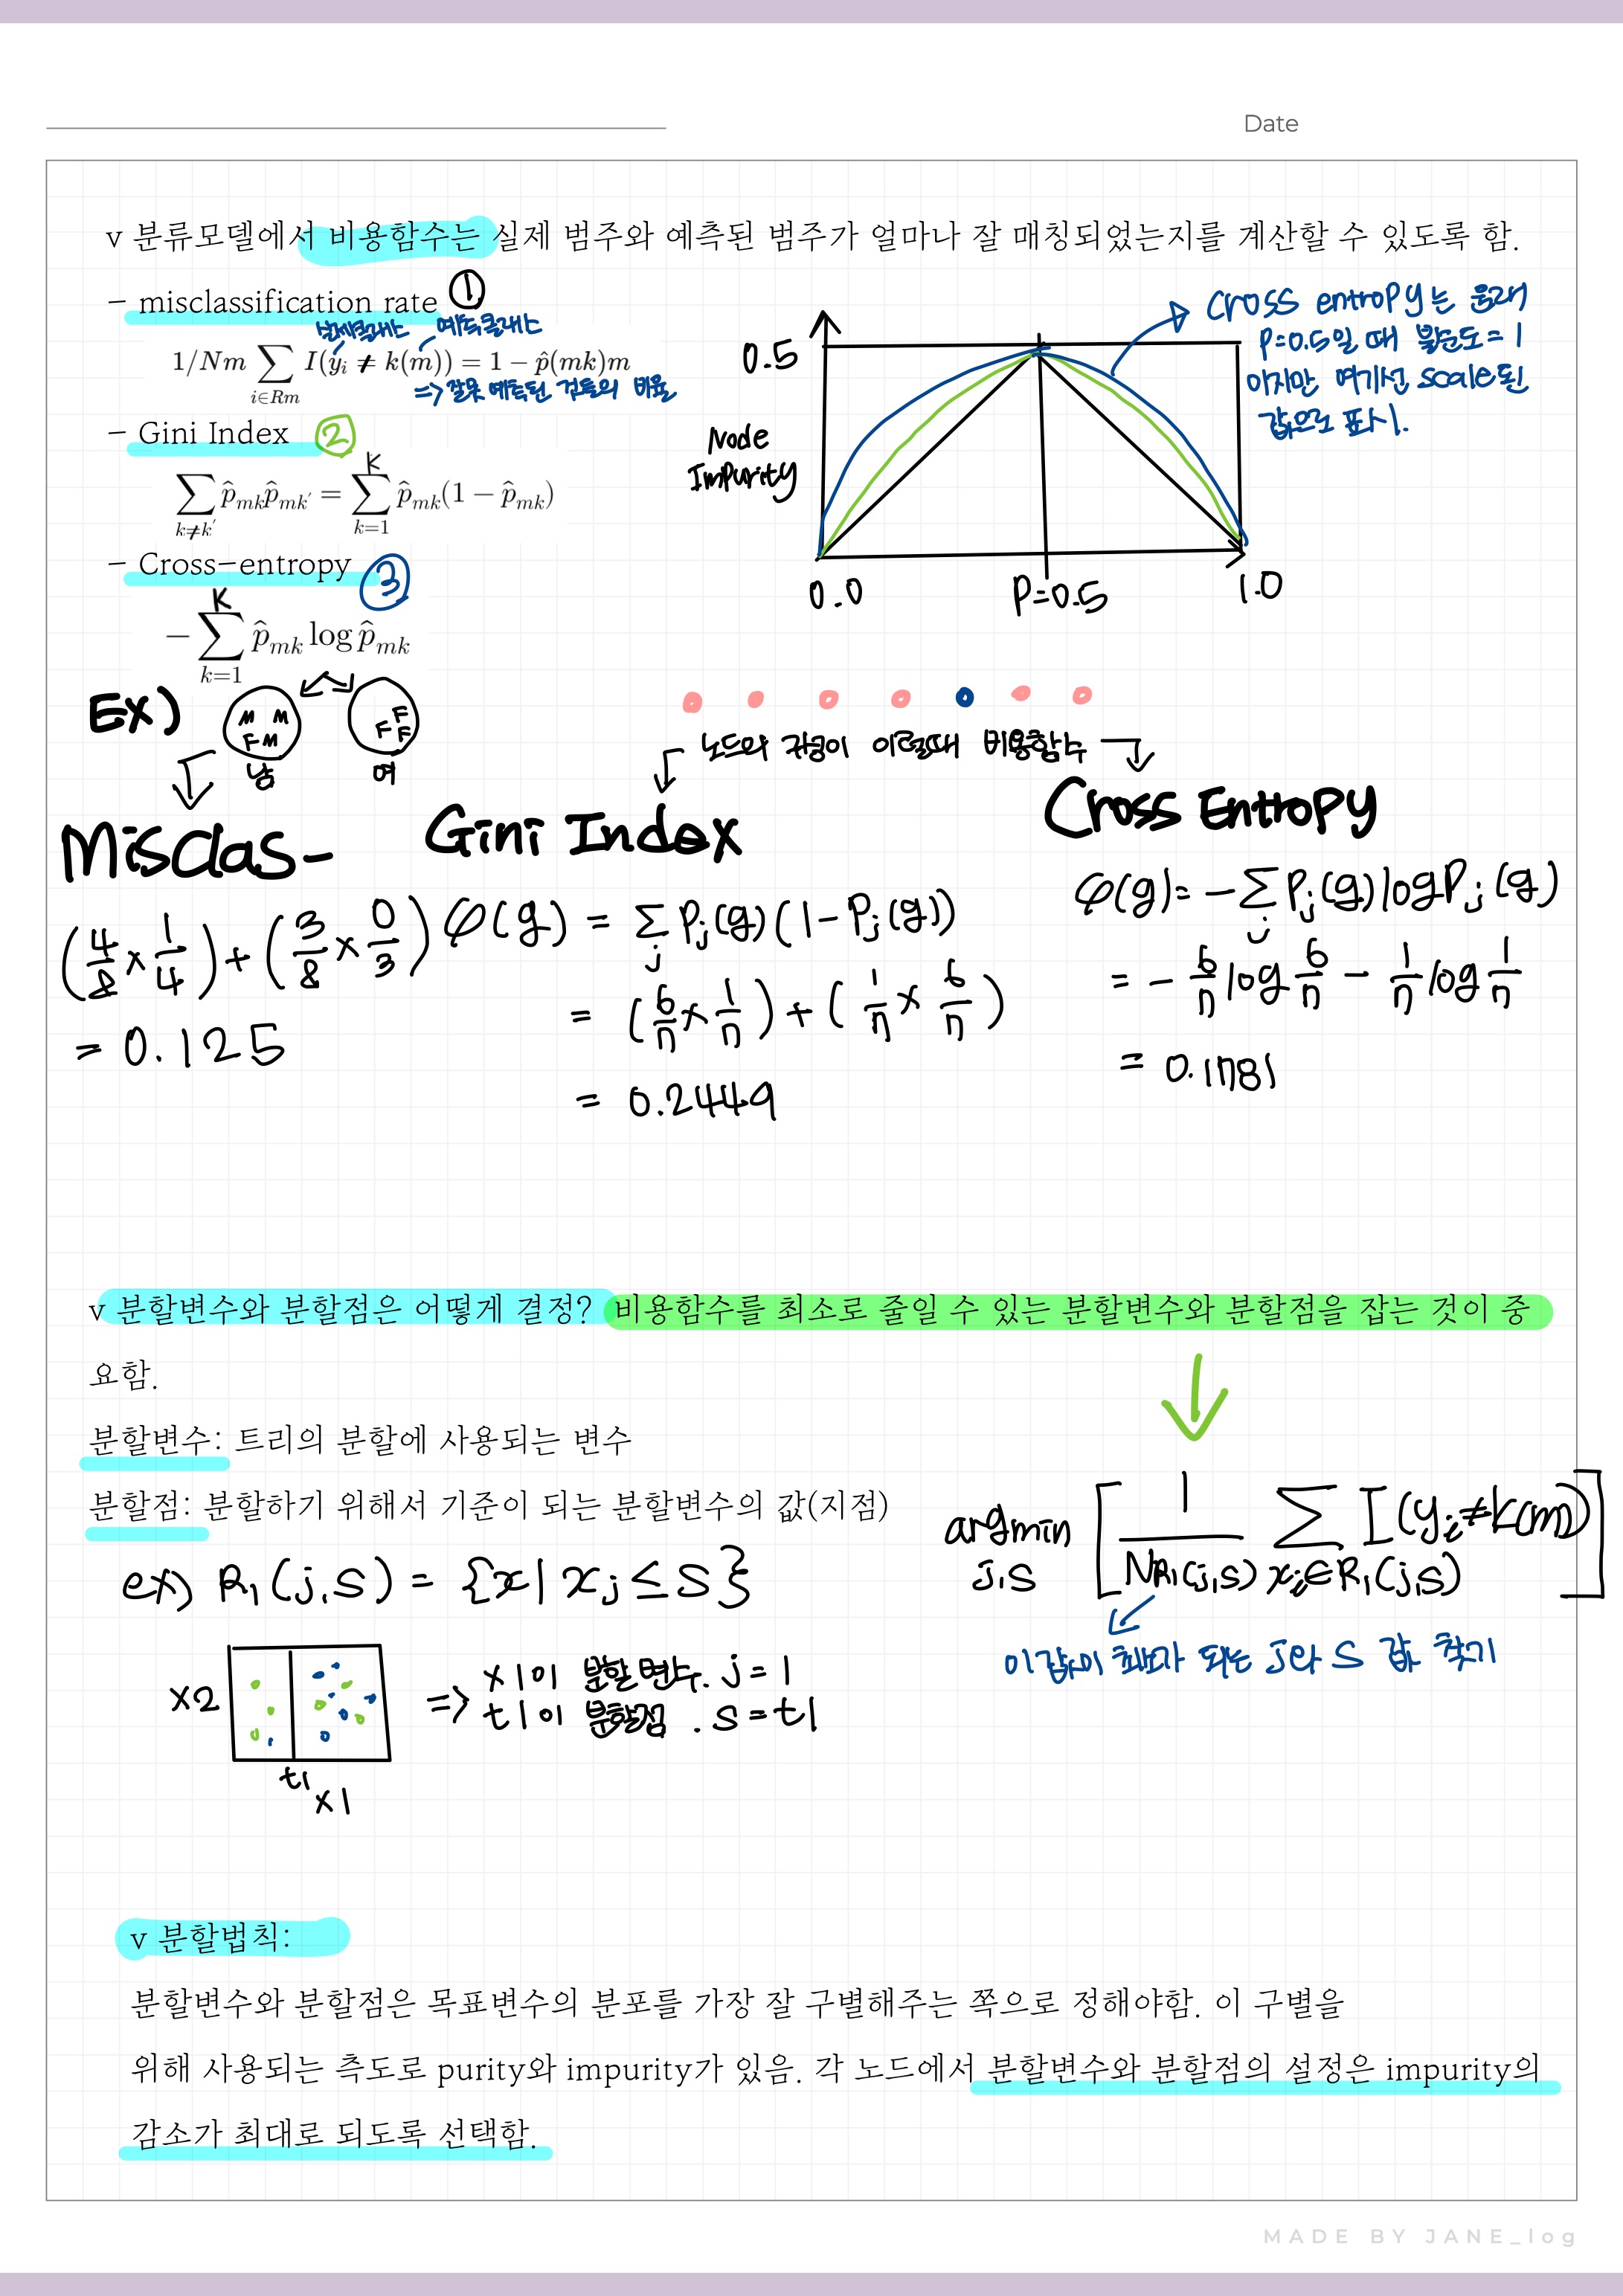 Date
v 분류모델에서 비용함수는 실제 범주와 예측된 범주가 얼마나 잘 매칭되었는지를 계산할 수 있도록 함.
- misclassification rate ①
실제클래스 예측클래스
1/Nm ∑_{i∈Rm} I(y_i ≠ k(m)) = 1 − p̂(mk)m
=> 잘못 예측된 것들의 비율
- Gini Index ②
∑_{k≠k'} p̂_{mk} p̂_{mk'} = ∑_{k=1}^{K} p̂_{mk}(1 − p̂_{mk})
- Cross-entropy ③
− ∑_{k=1}^{K} p̂_{mk} log p̂_{mk}
0.5
Node
Impurity
0.0
P=0.5
1.0
cross entropy는 원래
P=0.5일 때 불순도=1
이지만 여기선 scale된
값으로 표시.
EX)
M M
F M
남
F
F F
여
노드의 구성이 이럴때 비용함수
Misclas-
(4/8 × 1/4) + (3/8 × 0/3)
= 0.125
Gini Index
φ(g) = ∑_j P_j(g)(1−P_j(g))
= (6/7 × 1/7) + (1/7 × 6/7)
= 0.2449
Cross Entropy
φ(g) = −∑_j P_j(g) log P_j(g)
= − 6/7 log 6/7 − 1/7 log 1/7
= 0.1781
v 분할변수와 분할점은 어떻게 결정? 비용함수를 최소로 줄일 수 있는 분할변수와 분할점을 잡는 것이 중
요함.
분할변수: 트리의 분할에 사용되는 변수
분할점: 분할하기 위해서 기준이 되는 분할변수의 값(지점)
ex) R1(j,s) = {x | xj ≤ s}
argmin j,s [ 1/N_{R1(j,s)} ∑_{xi∈R1(j,s)} I(yi≠k(m)) ]
이값이 최소가 되는 j와 s 값 찾기
x2
t1
x1
=> x1이 분할변수. j=1
t1이 분할점. s=t1
v 분할법칙:
분할변수와 분할점은 목표변수의 분포를 가장 잘 구별해주는 쪽으로 정해야함. 이 구별을
위해 사용되는 측도로 purity와 impurity가 있음. 각 노드에서 분할변수와 분할점의 설정은 impurity의
감소가 최대로 되도록 선택함.
MADE BY JANE_log